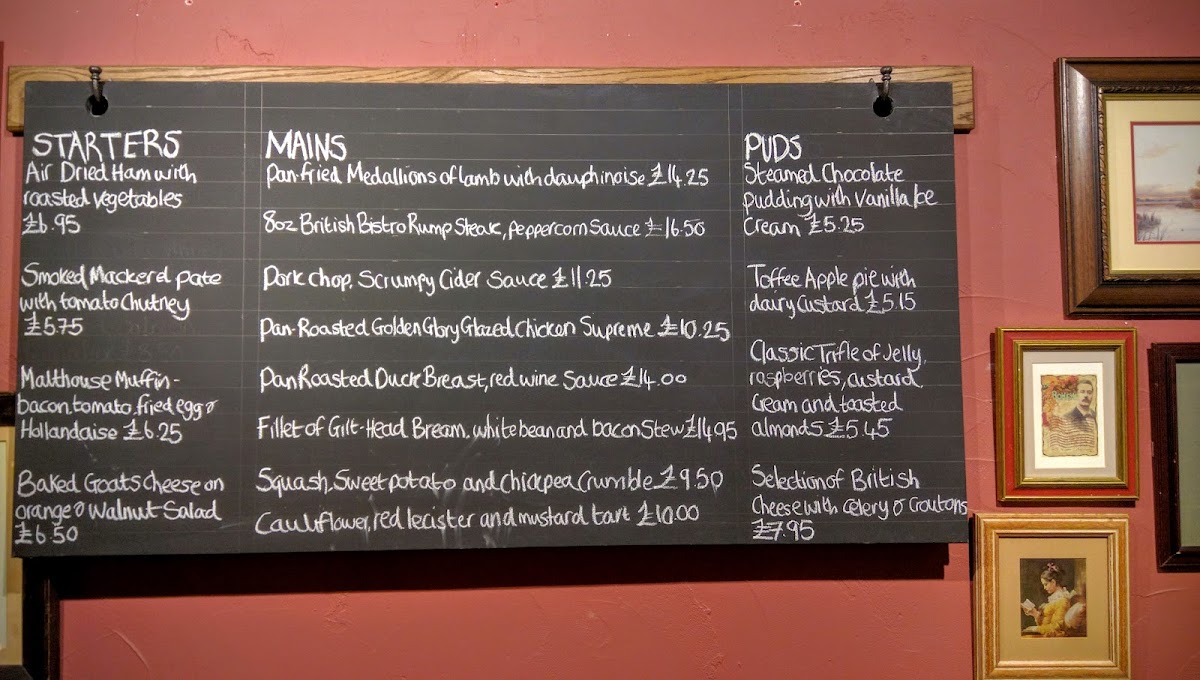 STARTERS
Air Dried Ham with
roasted vegetables
£6.95
Smoked Mackerel pate
with tomato Chutney
£5.75
Malthouse Muffin -
bacon, tomato, fried egg &
Hollandaise £6.25
Baked Goats Cheese on
orange & Walnut Salad
£6.50
MAINS
Pan-fried Medallions of lamb with dauphinoise £14.25
8oz British Bistro Rump Steak, peppercorn Sauce £16.50
Pork chop, Scrumpy Cider Sauce £11.25
Pan-Roasted Golden Glory Glazed Chicken Supreme £10.25
Pan Roasted Duck Breast, red wine Sauce £14.00
Fillet of Gilt-Head Bream, white bean and bacon Stew £14.95
Squash, Sweet potato and chickpea Crumble £9.50
Cauliflower, red leicister and mustard tart £10.00
PUDS
Steamed Chocolate
pudding with Vanilla Ice
Cream £5.25
Toffee Apple pie with
dairy Custard £5.15
Classic Trifle of Jelly,
raspberries, custard,
Cream and toasted
almonds £5.45
Selection of British
Cheese with celery & Croutons
£7.95